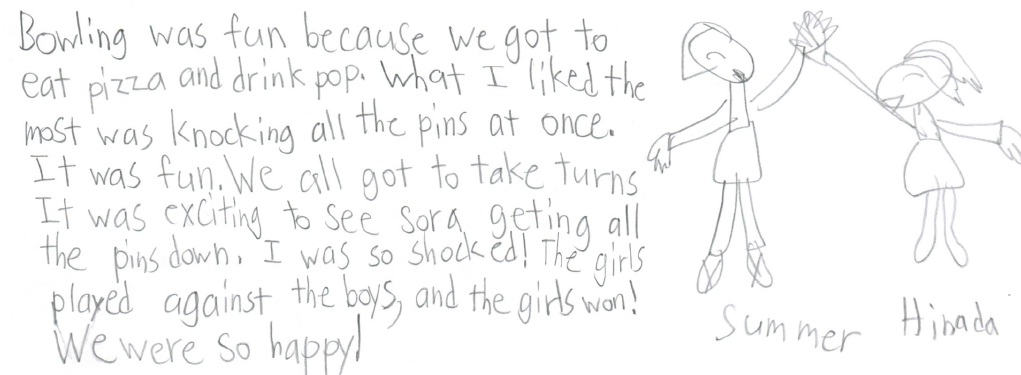 Bowling was fun because we got to
eat pizza and drink pop. What I liked the
most was knocking all the pins at once.
It was fun. We all got to take turns
It was exciting to see Sora geting all
the pins down. I was so shocked! The girls
played against the boys, and the girls won!
We were so happy!
Summer Hinada